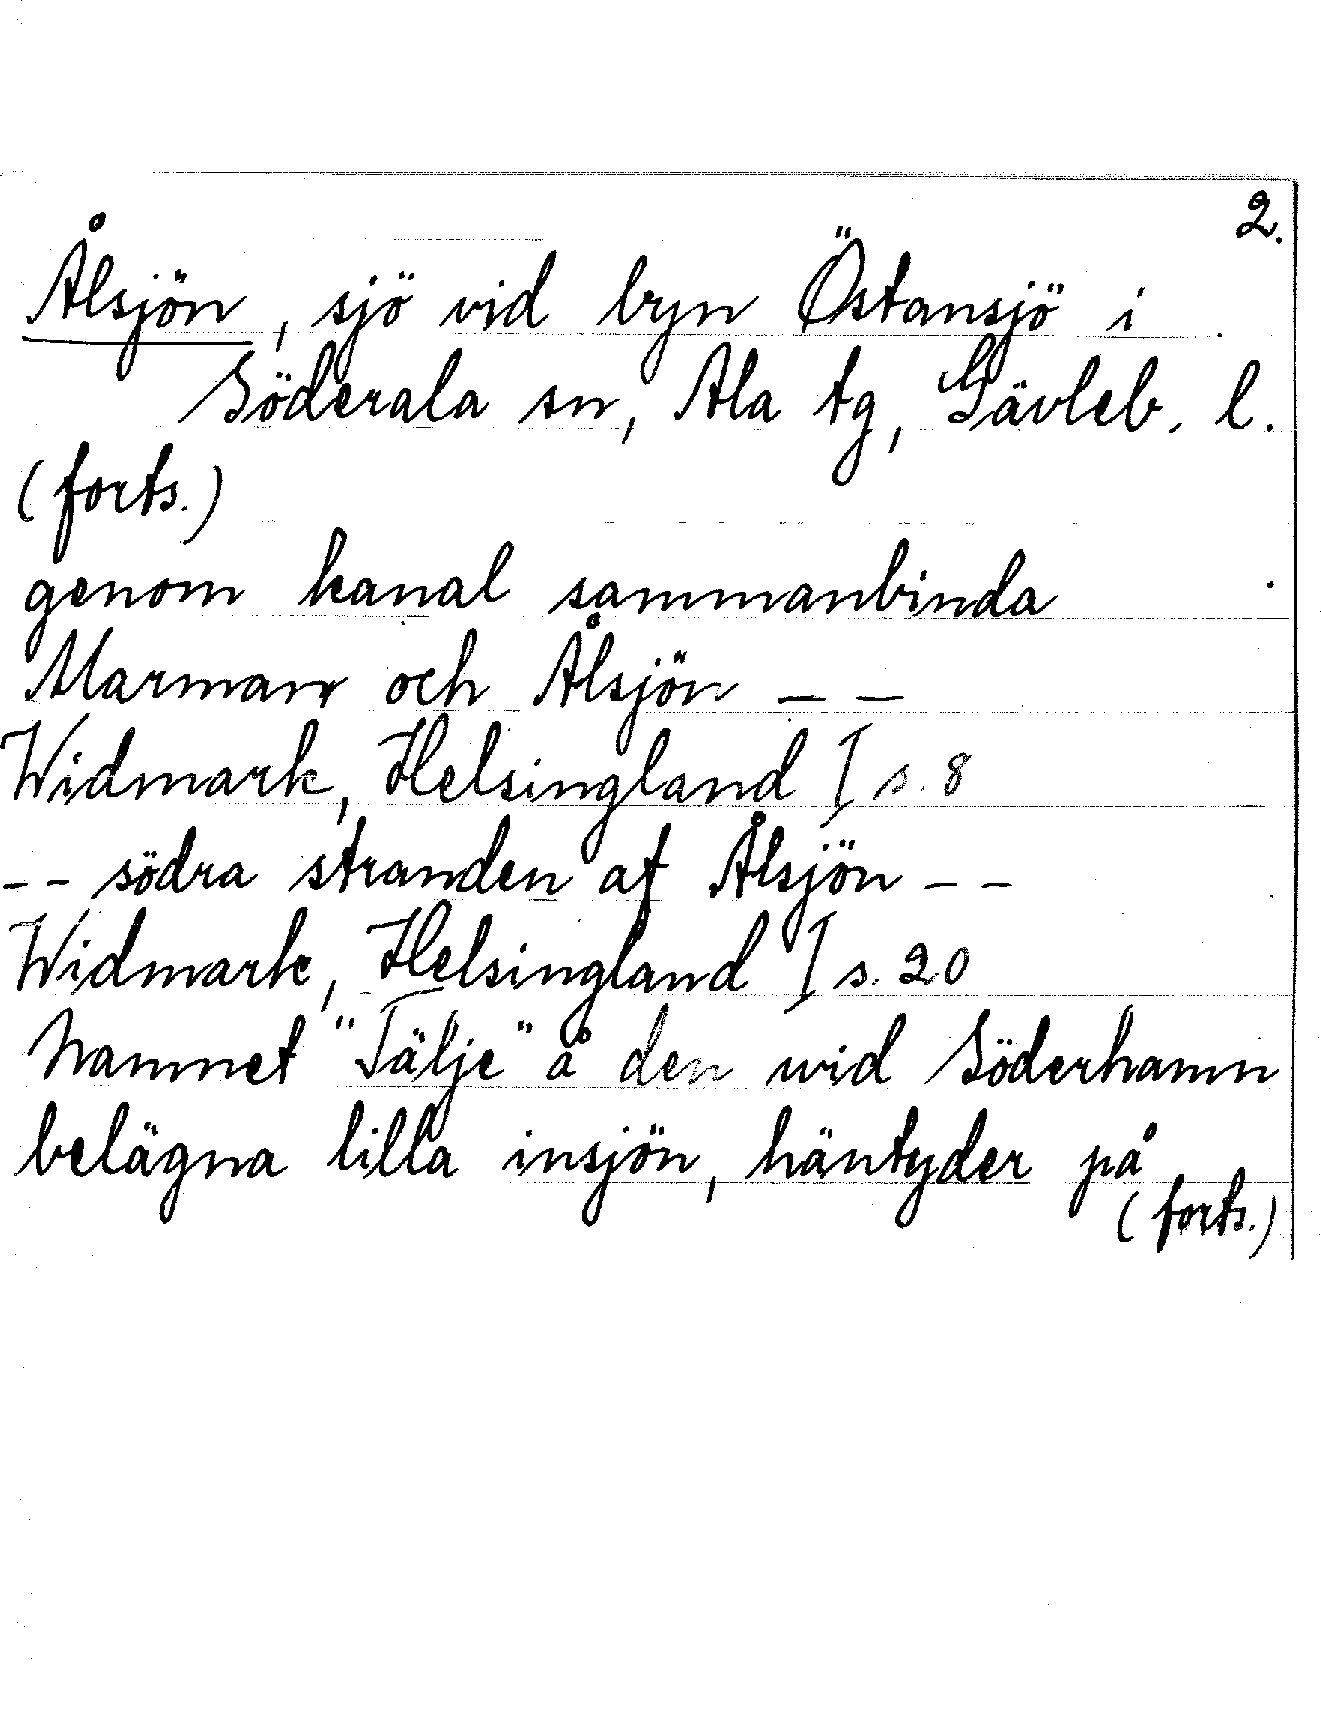 2.
Ålsjön, sjö vid byn Östansjö i
Söderala sn, Ala tg, Gävleb. l.
(forts.)
genom kanal sammanbinda
Marman och Ålsjön – –
Widmark, Helsingland I s. 8
– – södra stranden af Ålsjön – –
Widmark, Helsingland I s. 20
Namnet "Tälje" å den wid Söderhamn
belägna lilla insjön, häntyder på
(forts.)